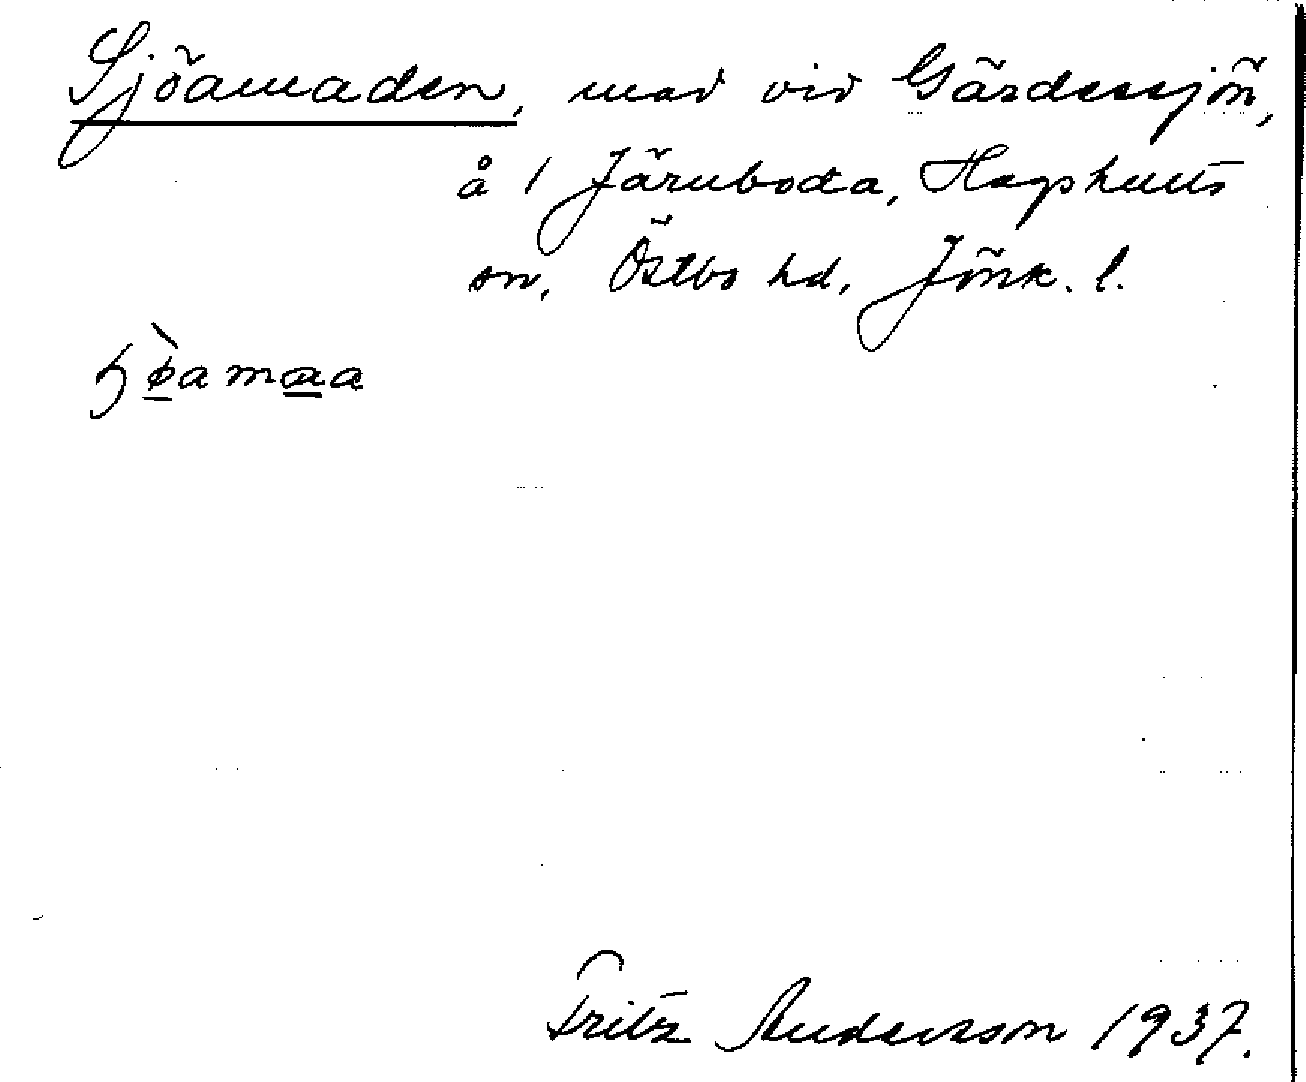 Sjöamaden, mad vid Gärdessjön,
å 1 Järnboda, Hagshults
sn, Östbo hd, Jönk. l.
ɧø̀amaa
Fritz Andersson 1937.